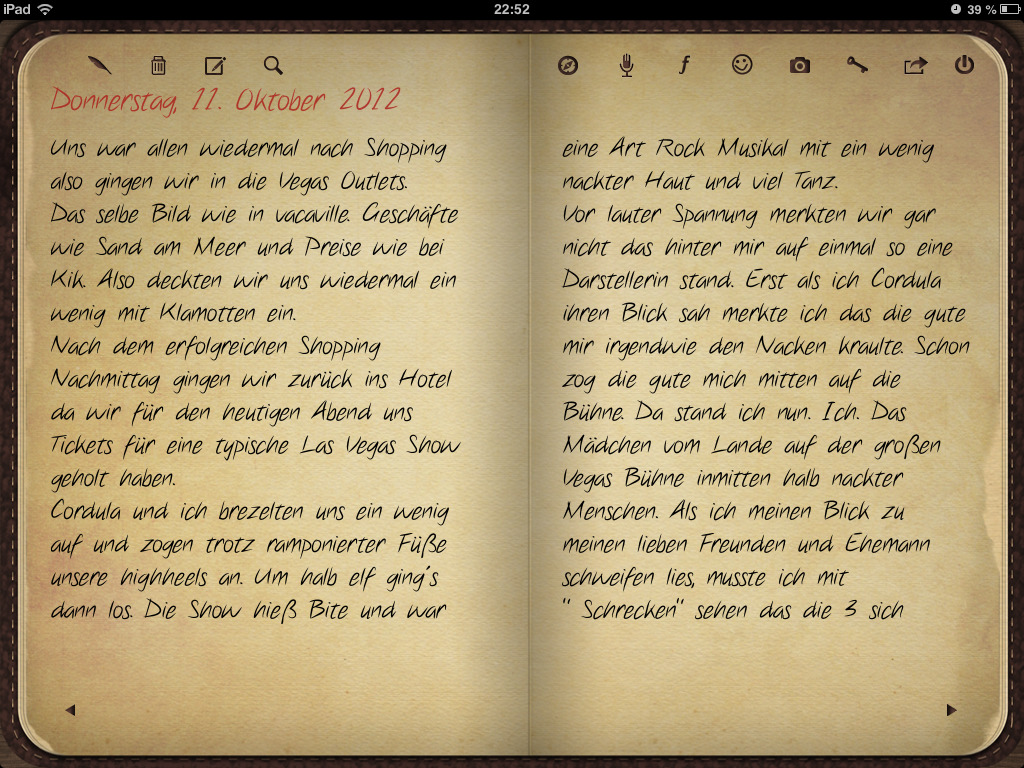 iPad 22:52 39 %
Donnerstag, 11. Oktober 2012
Uns war allen wiedermal nach Shopping
also gingen wir in die Vegas Outlets.
Das selbe Bild wie in vacaville. Geschäfte
wie Sand am Meer und Preise wie bei
Kik. Also deckten wir uns wiedermal ein
wenig mit Klamotten ein.
Nach dem erfolgreichen Shopping
Nachmittag gingen wir zurück ins Hotel
da wir für den heutigen Abend uns
Tickets für eine typische Las Vegas Show
geholt haben.
Cordula und ich brezelten uns ein wenig
auf und zogen trotz ramponierter Füße
unsere highheels an. Um halb elf ging's
dann los. Die Show hieß Bite und war
eine Art Rock Musikal mit ein wenig
nackter Haut und viel Tanz.
Vor lauter Spannung merkten wir gar
nicht das hinter mir auf einmal so eine
Darstellerin stand. Erst als ich Cordula
ihren Blick sah merkte ich das die gute
mir irgendwie den Nacken kraulte. Schon
zog die gute mich mitten auf die
Bühne. Da stand ich nun. Ich. Das
Mädchen vom Lande auf der großen
Vegas Bühne inmitten halb nackter
Menschen. Als ich meinen Blick zu
meinen lieben Freunden und Ehemann
schweifen lies, musste ich mit
" Schrecken" sehen das die 3 sich